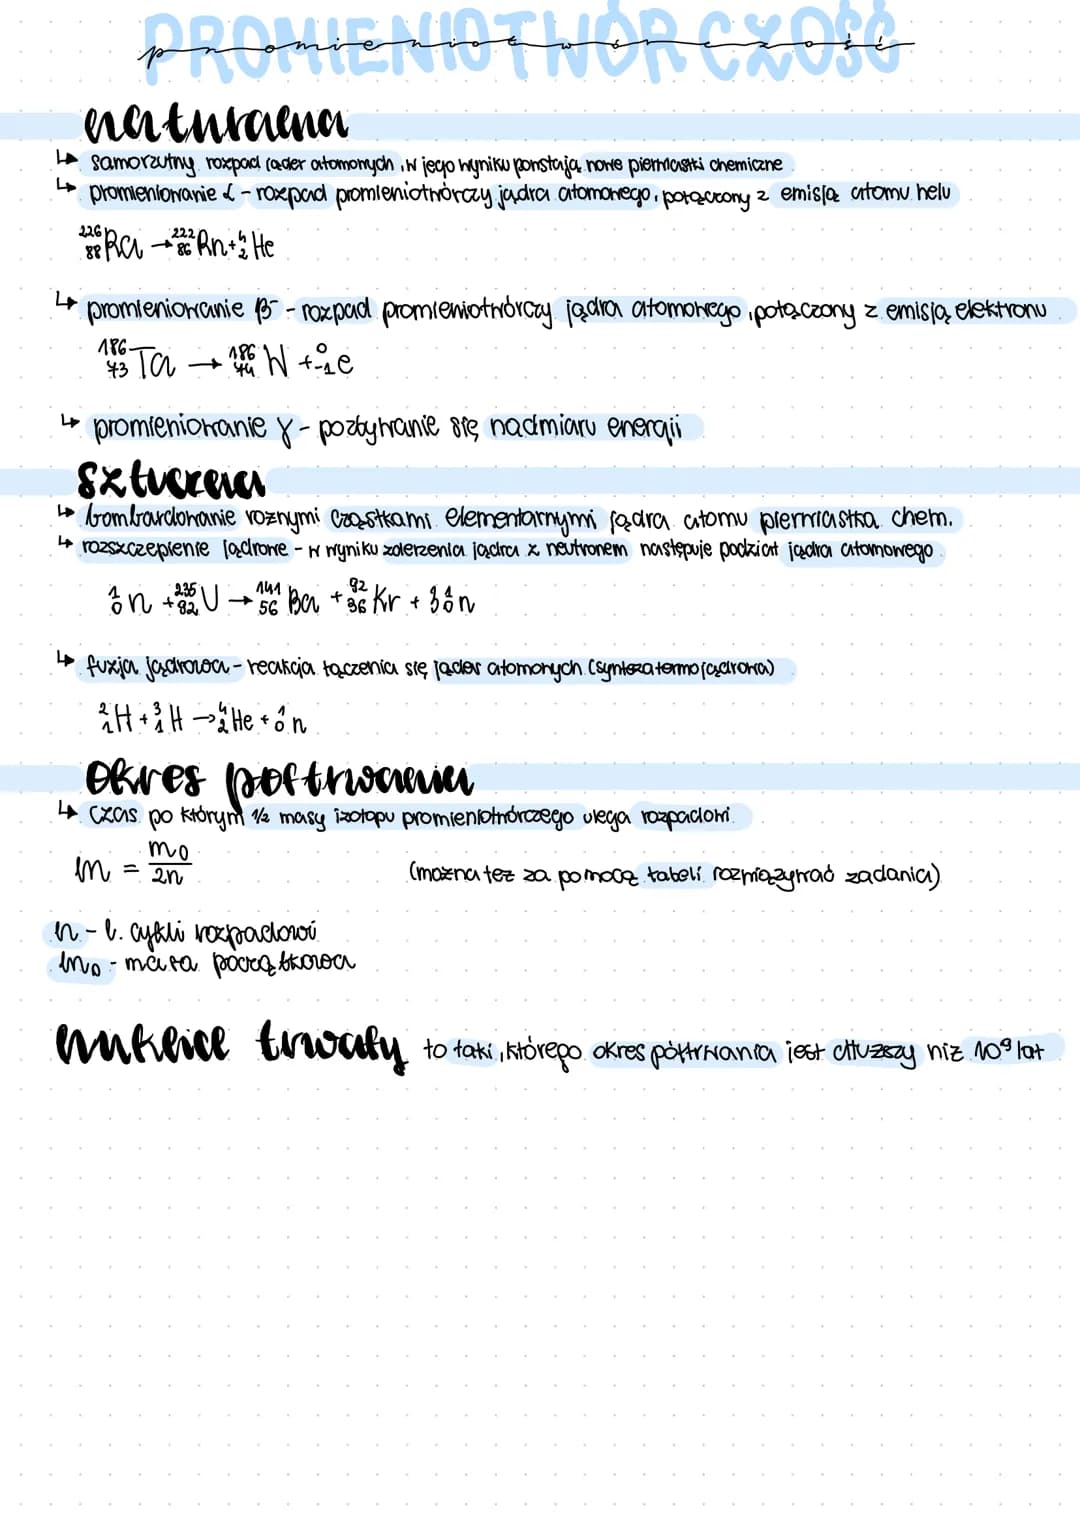 PROMIENIOTWÓRCZOŚĆ
promieniotwórczość
naturalna
↳ samorzutny rozpad jąder atomowych, w jego wyniku powstają nowe pierwiastki chemiczne
↳ promieniowanie α - rozpad promieniotwórczy jądra atomowego, połączony z emisją atomu helu
²²⁶₈₈Ra → ²²²₈₆Rn + ⁴₂He
↳ promieniowanie β⁻ - rozpad promieniotwórczy jądra atomowego, połączony z emisją elektronu
¹⁸⁶₇₃Ta → ¹⁸⁶₇₄W + ⁰₋₁e
↳ promieniowanie γ - pozbywanie się nadmiaru energii
sztuczna
↳ bombardowanie roznymi cząstkami elementarnymi jądra atomu pierwiastka chem.
↳ rozszczepienie jądrowe - w wyniku zderzenia jądra z neutronem następuje podział jądra atomowego
¹₀n + ²³⁵₉₂U → ¹⁴¹₅₆Ba + ⁹²₃₆Kr + 3¹₀n
↳ fuzja jądrowa - reakcja łączenia się jąder atomowych (synteza termojądrowa)
²₁H + ³₁H → ⁴₂He + ¹₀n
okres połtrwania
↳ czas po którym 1/2 masy izotopu promieniotwórczego ulega rozpadowi
m = m₀/2n (można też za pomocą tabeli rozwiązywać zadania)
n - l. cykli rozpadowi
m₀ - masa początkowa
nuklid trwały to taki, którego okres półtrwania jest dłuższy niż 10⁹ lat